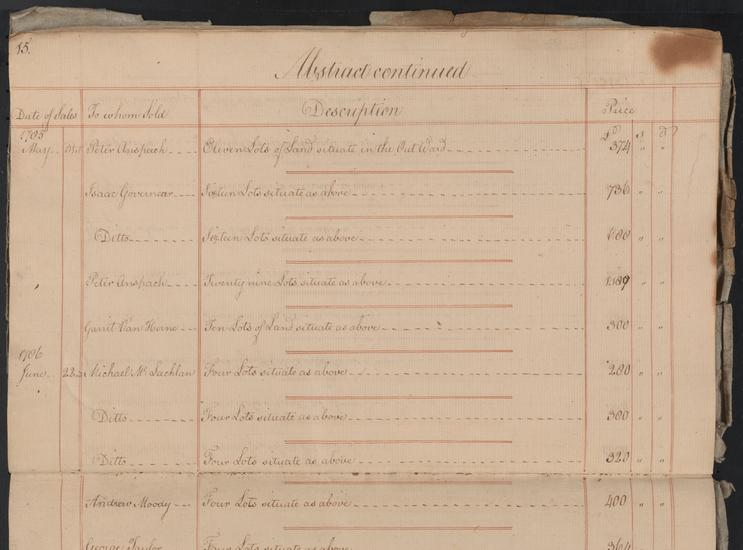 15.
Abstract continued
Date of Sales To whom Sold Description Price
£ s d
1785
May Peter Anspach Eleven Lots of Land situate in the Out Ward 374 " "
Isaac Governear Sixteen Lots situate as above 736 " "
Ditto Sixteen Lots situate as above " "
Peter Anspach Twenty nine Lots situate as above " "
Garrit Van Horne Ten Lots of Land situate as above 300 " "
1786
June 22nd Michael Mc Lachlan Four Lots situate as above 280 " "
Ditto Four Lots situate as above 300 " "
Ditto Four Lots situate as above 320 " "
Andrew Moody Four Lots situate as above 400 " "
George Taylor Four Lots situate as above 364